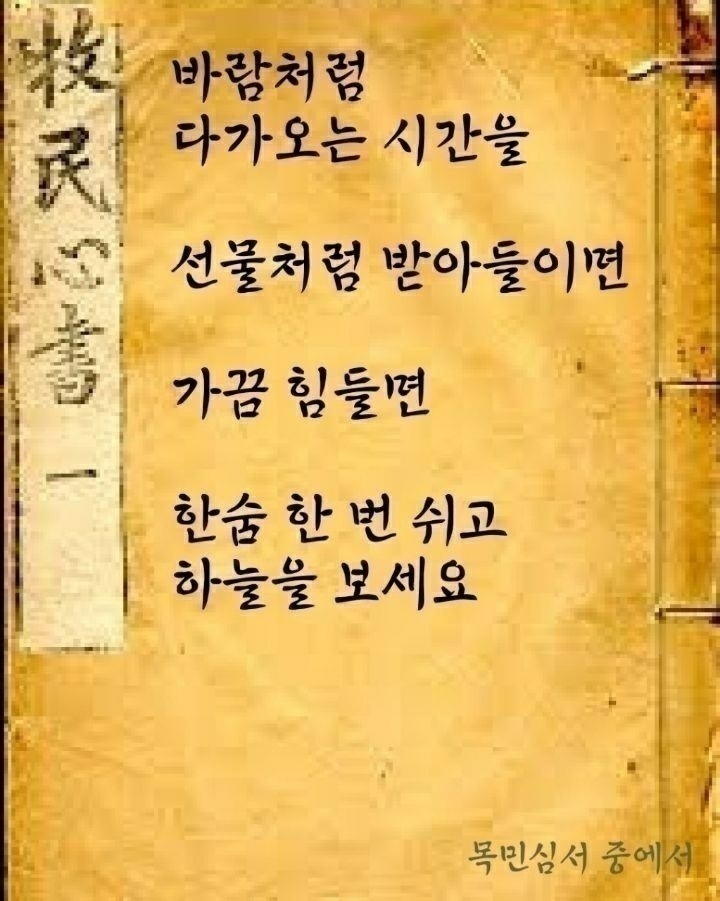 牧民心書 一
바람처럼
다가오는 시간을
선물처럼 받아들이면
가끔 힘들면
한숨 한 번 쉬고
하늘을 보세요
목민심서 중에서